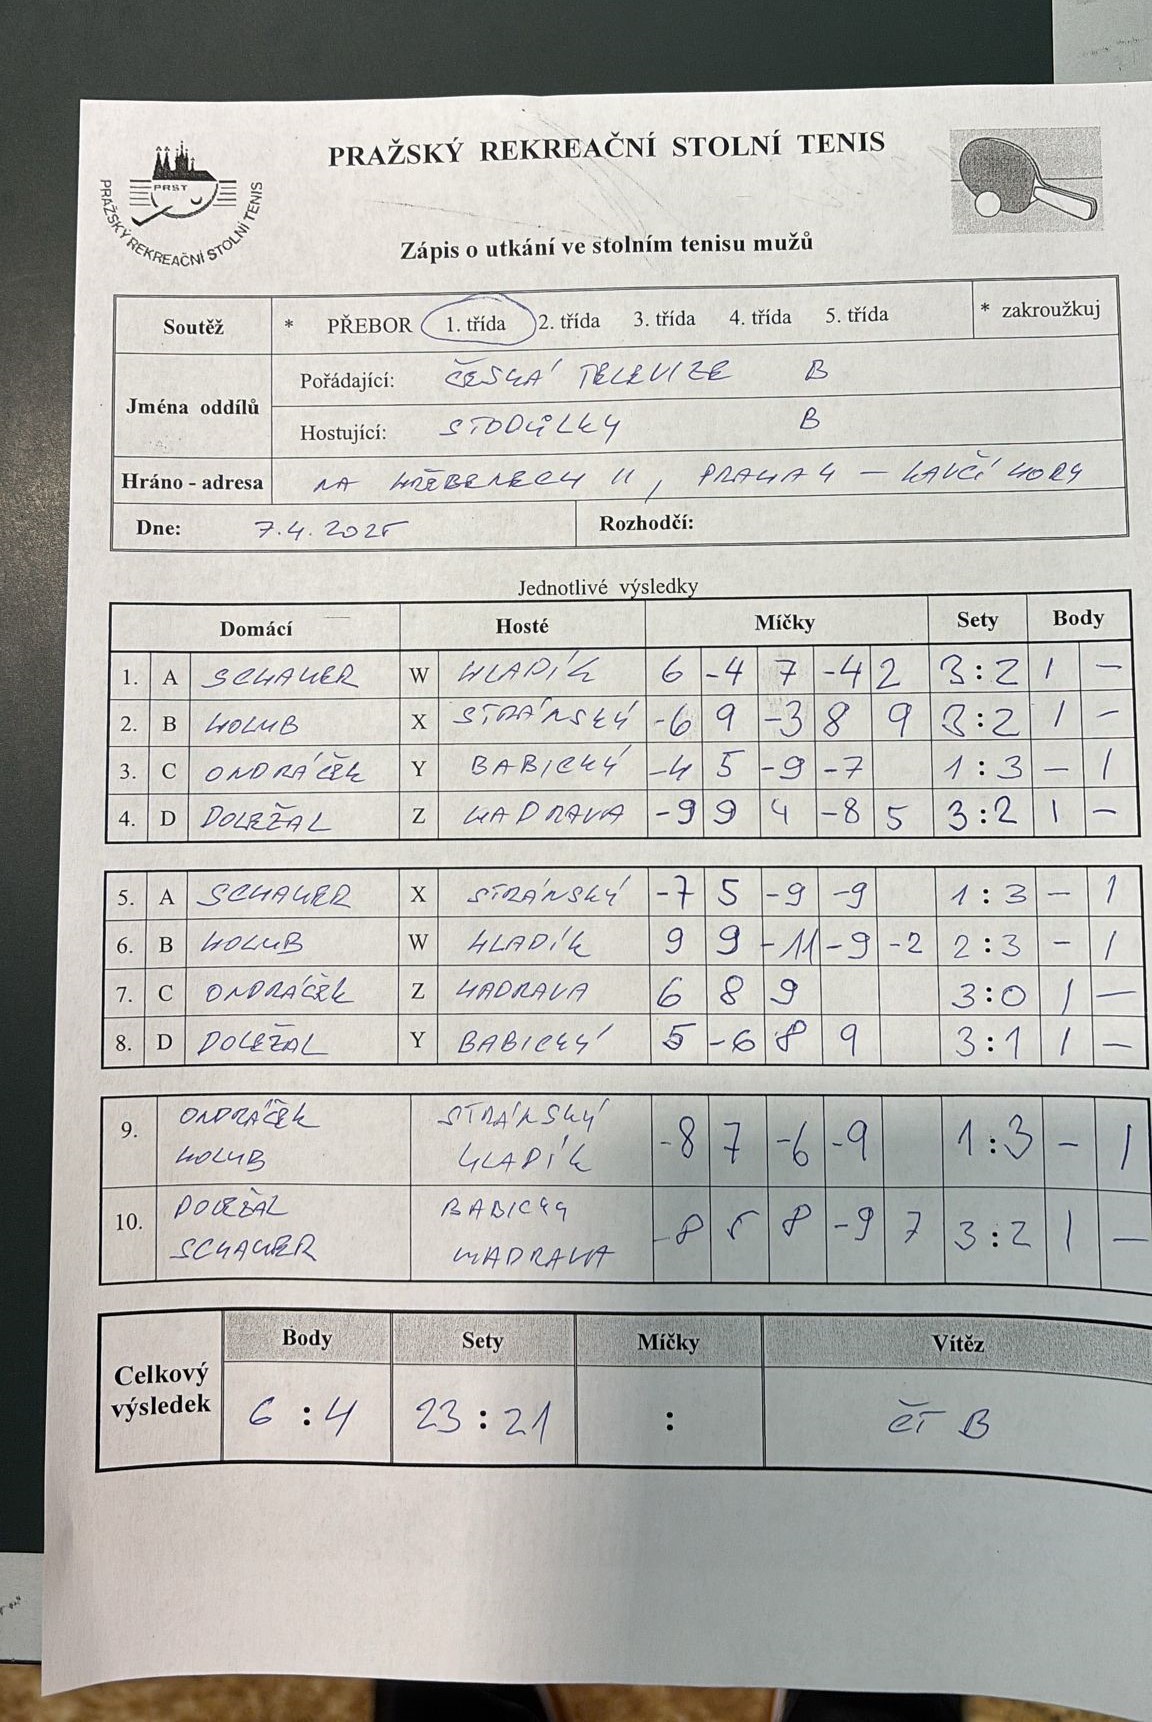 PRAŽSKÝ REKREAČNÍ STOLNÍ TENIS
PRST
PRAŽSKÝ REKREAČNÍ STOLNÍ TENIS
Zápis o utkání ve stolním tenisu mužů
Soutěž * PŘEBOR 1. třída 2. třída 3. třída 4. třída 5. třída * zakroužkuj
Jména oddílů
Pořádající: ČESKÁ TELEVIZE B
Hostující: STODŮLKY B
Hráno - adresa NA HŘEBENECH II, PRAHA 4 – KAVČÍ HORY
Dne: 7.4. 2025 Rozhodčí:
Jednotlivé výsledky
Domácí Hosté Míčky Sety Body
1. A SCHAUER W HLADÍK 6 -4 7 -4 2 3:2 1 –
2. B HOLUB X STRÁNSKÝ -6 9 -3 8 9 3:2 1 –
3. C ONDRÁČEK Y BABICKÝ -4 5 -9 -7 1:3 – 1
4. D DOLEŽAL Z HADRAVA -9 9 4 -8 5 3:2 1 –
5. A SCHAUER X STRÁNSKÝ -7 5 -9 -9 1:3 – 1
6. B HOLUB W HLADÍK 9 9 -11 -9 -2 2:3 – 1
7. C ONDRÁČEK Z HADRAVA 6 8 9 3:0 1 –
8. D DOLEŽAL Y BABICKÝ 5 -6 8 9 3:1 1 –
9. ONDRÁČEK STRÁNSKÝ -8 7 -6 -9 1:3 – 1
HOLUB HLADÍK
10. DOLEŽAL BABICKY -8 5 8 -9 7 3:2 1 –
SCHAUER HADRAVA
Celkový výsledek Body Sety Míčky Vítěz
6:4 23:21 : ČT B